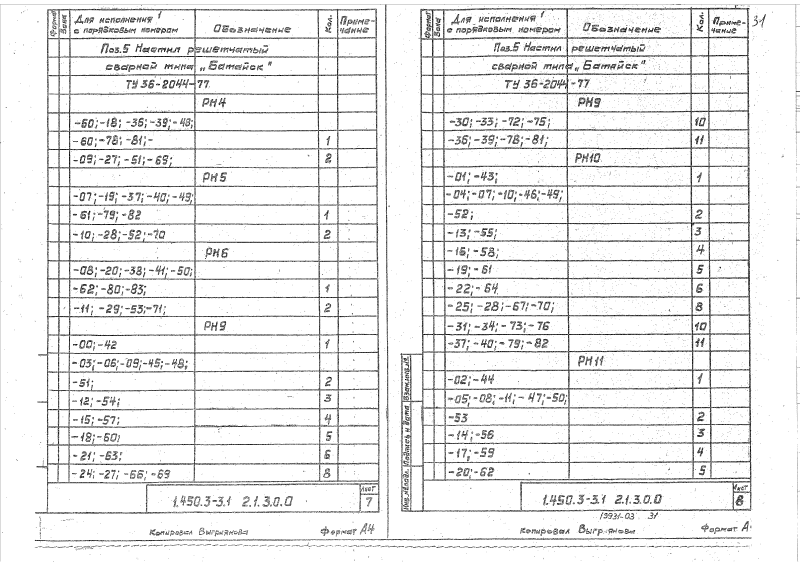 Формат
Зона
Для исполнения 1
с порядковым номером
Обозначение
Кол.
Приме-
чание
Поз.5 Настил решетчатый
сварной типа „Батайск"
ТУ 36-2044-77
РН4
-60;-18; -36; -39; -48;
-60; -78; -81; -
1
-09; -27; -51; -69;
2
РН5
-07; -19; -37; -40; -49;
-61; -79; -82
1
-10; -28; -52; -70
2
РН6
-08; -20; -38; -41; -50;
-62; -80; -83;
1
-11; -29; -53; -71;
2
РН9
-00; -42
1
-03; -06; -09; -45; -48;
-51;
2
-12; -54;
3
-15; -57;
4
-18; -60;
5
-21; -63;
6
-24; -27; -66; -69
8
1.450.3-3.1 2.1.3.0.0
Лист
7
Копировал Выгриянова
Формат А4
Формат
Зона
Для исполнения 1
с порядковым номером
Обозначение
Кол.
Приме-
чание
31
Поз.5 Настил решетчатый
сварной типа „Батайск"
ТУ 36-2044-77
РН9
-30; -33; -72; -75;
10
-36; -39; -78; -81;
11
РН10
-01; -43;
1
-04; -07; -10; -46; -49;
-52;
2
-13; -55;
3
-16; -58;
4
-19; -61
5
-22; -64
6
-25; -28; -67; -70;
8
-31; -34; -73; -76
10
-37; -40; -79; -82
11
РН11
-02; -44
1
-05; -08; -11; -47; -50;
-53
2
-14; -56
3
-17; -59
4
-20; -62
5
Инв.№подл. Подпись и дата Взам.инв.№
1.450.3-3.1 2.1.3.0.0
Лист
8
19931-03 31
Копировал Выгриянова
Формат А